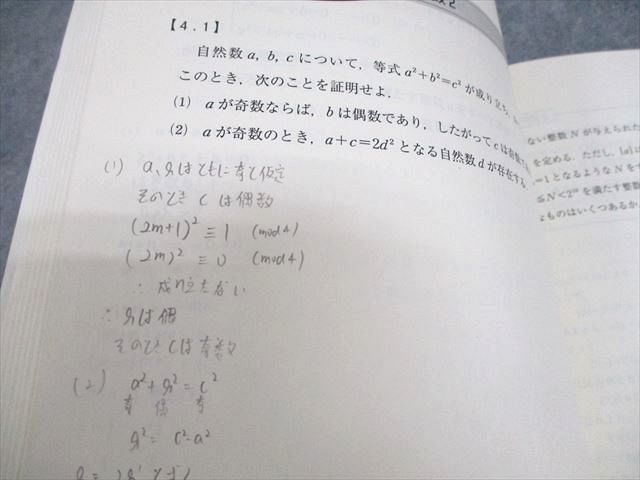 【4.1】
自然数 a, b, c について, 等式 a²+b²=c² が成り立ち,
このとき, 次のことを証明せよ.
(1) a が奇数ならば, b は偶数であり, したがって c は奇数
(2) a が奇数のとき, a+c=2d² となる自然数 d が存在する
(1) a, bはともに奇と仮定
そのとき c は偶数
(2m+1)² ≡ 1 (mod 4)
(2m)² ≡ 0 (mod 4)
∴ 成り立たない
∴ bは偶
そのとき cは奇数
(2) a²+b²=c²
奇 偶 奇
b²= c²-a²
ない整数 N が与えられた
を定める. ただし, [a]に
=1 となるような N を
≦N<2 を満たす整数
なものはいくつあるか.